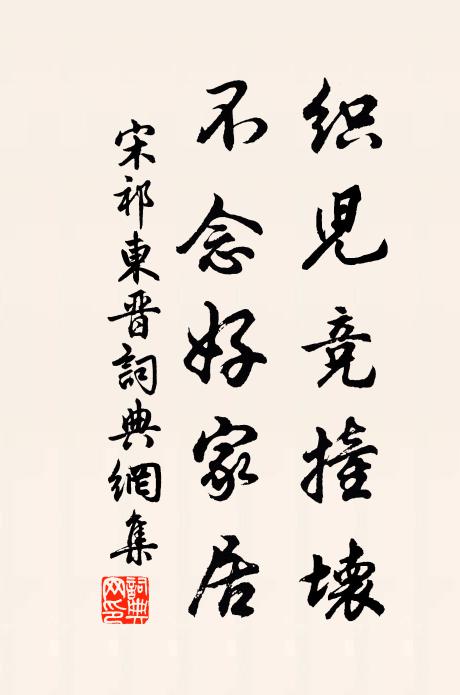 织児竞撞壊
不念好家居
宋祁東晋詞典網集
詞典网印